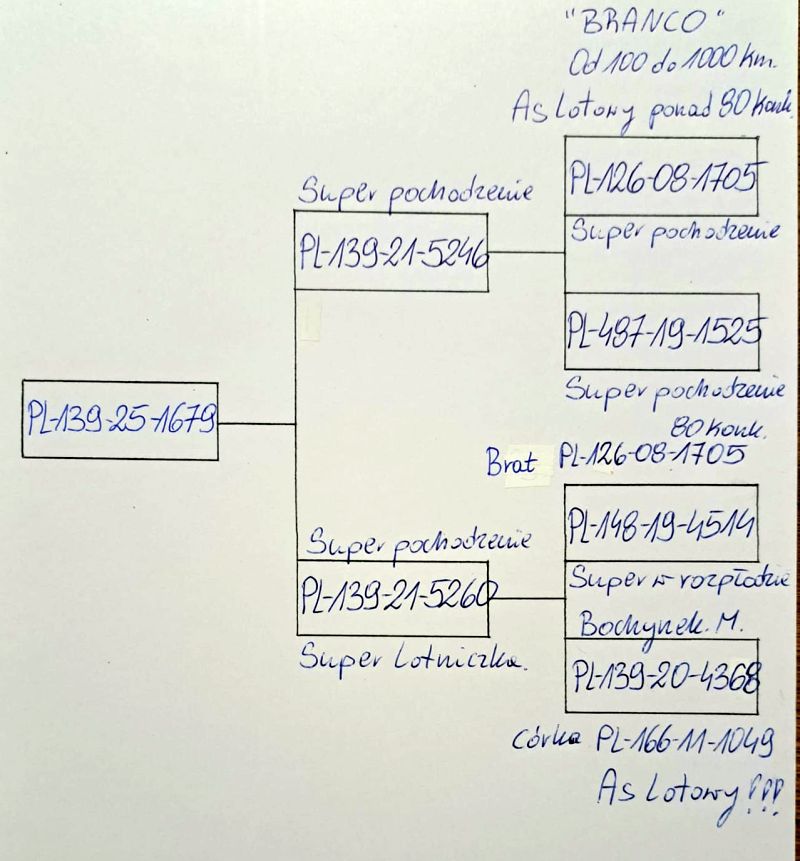 "BRANCO"
Od 100 do 1000 km.
As Lotowy ponad 80 Konk.
PL-126-08-1705
Super pochodzenie
Super pochodzenie
PL-139-21-5246
PL-487-19-1525
Super pochodzenie
80 Konk.
PL-139-25-1679
Brat PL-126-08-1705
PL-148-19-4514
Super pochodzenie
PL-139-21-5260
Super w rozpłodzie
Bochynek. M.
Super Lotniczka.
PL-139-20-4368
córka PL-166-11-1049
As Lotowy!!!